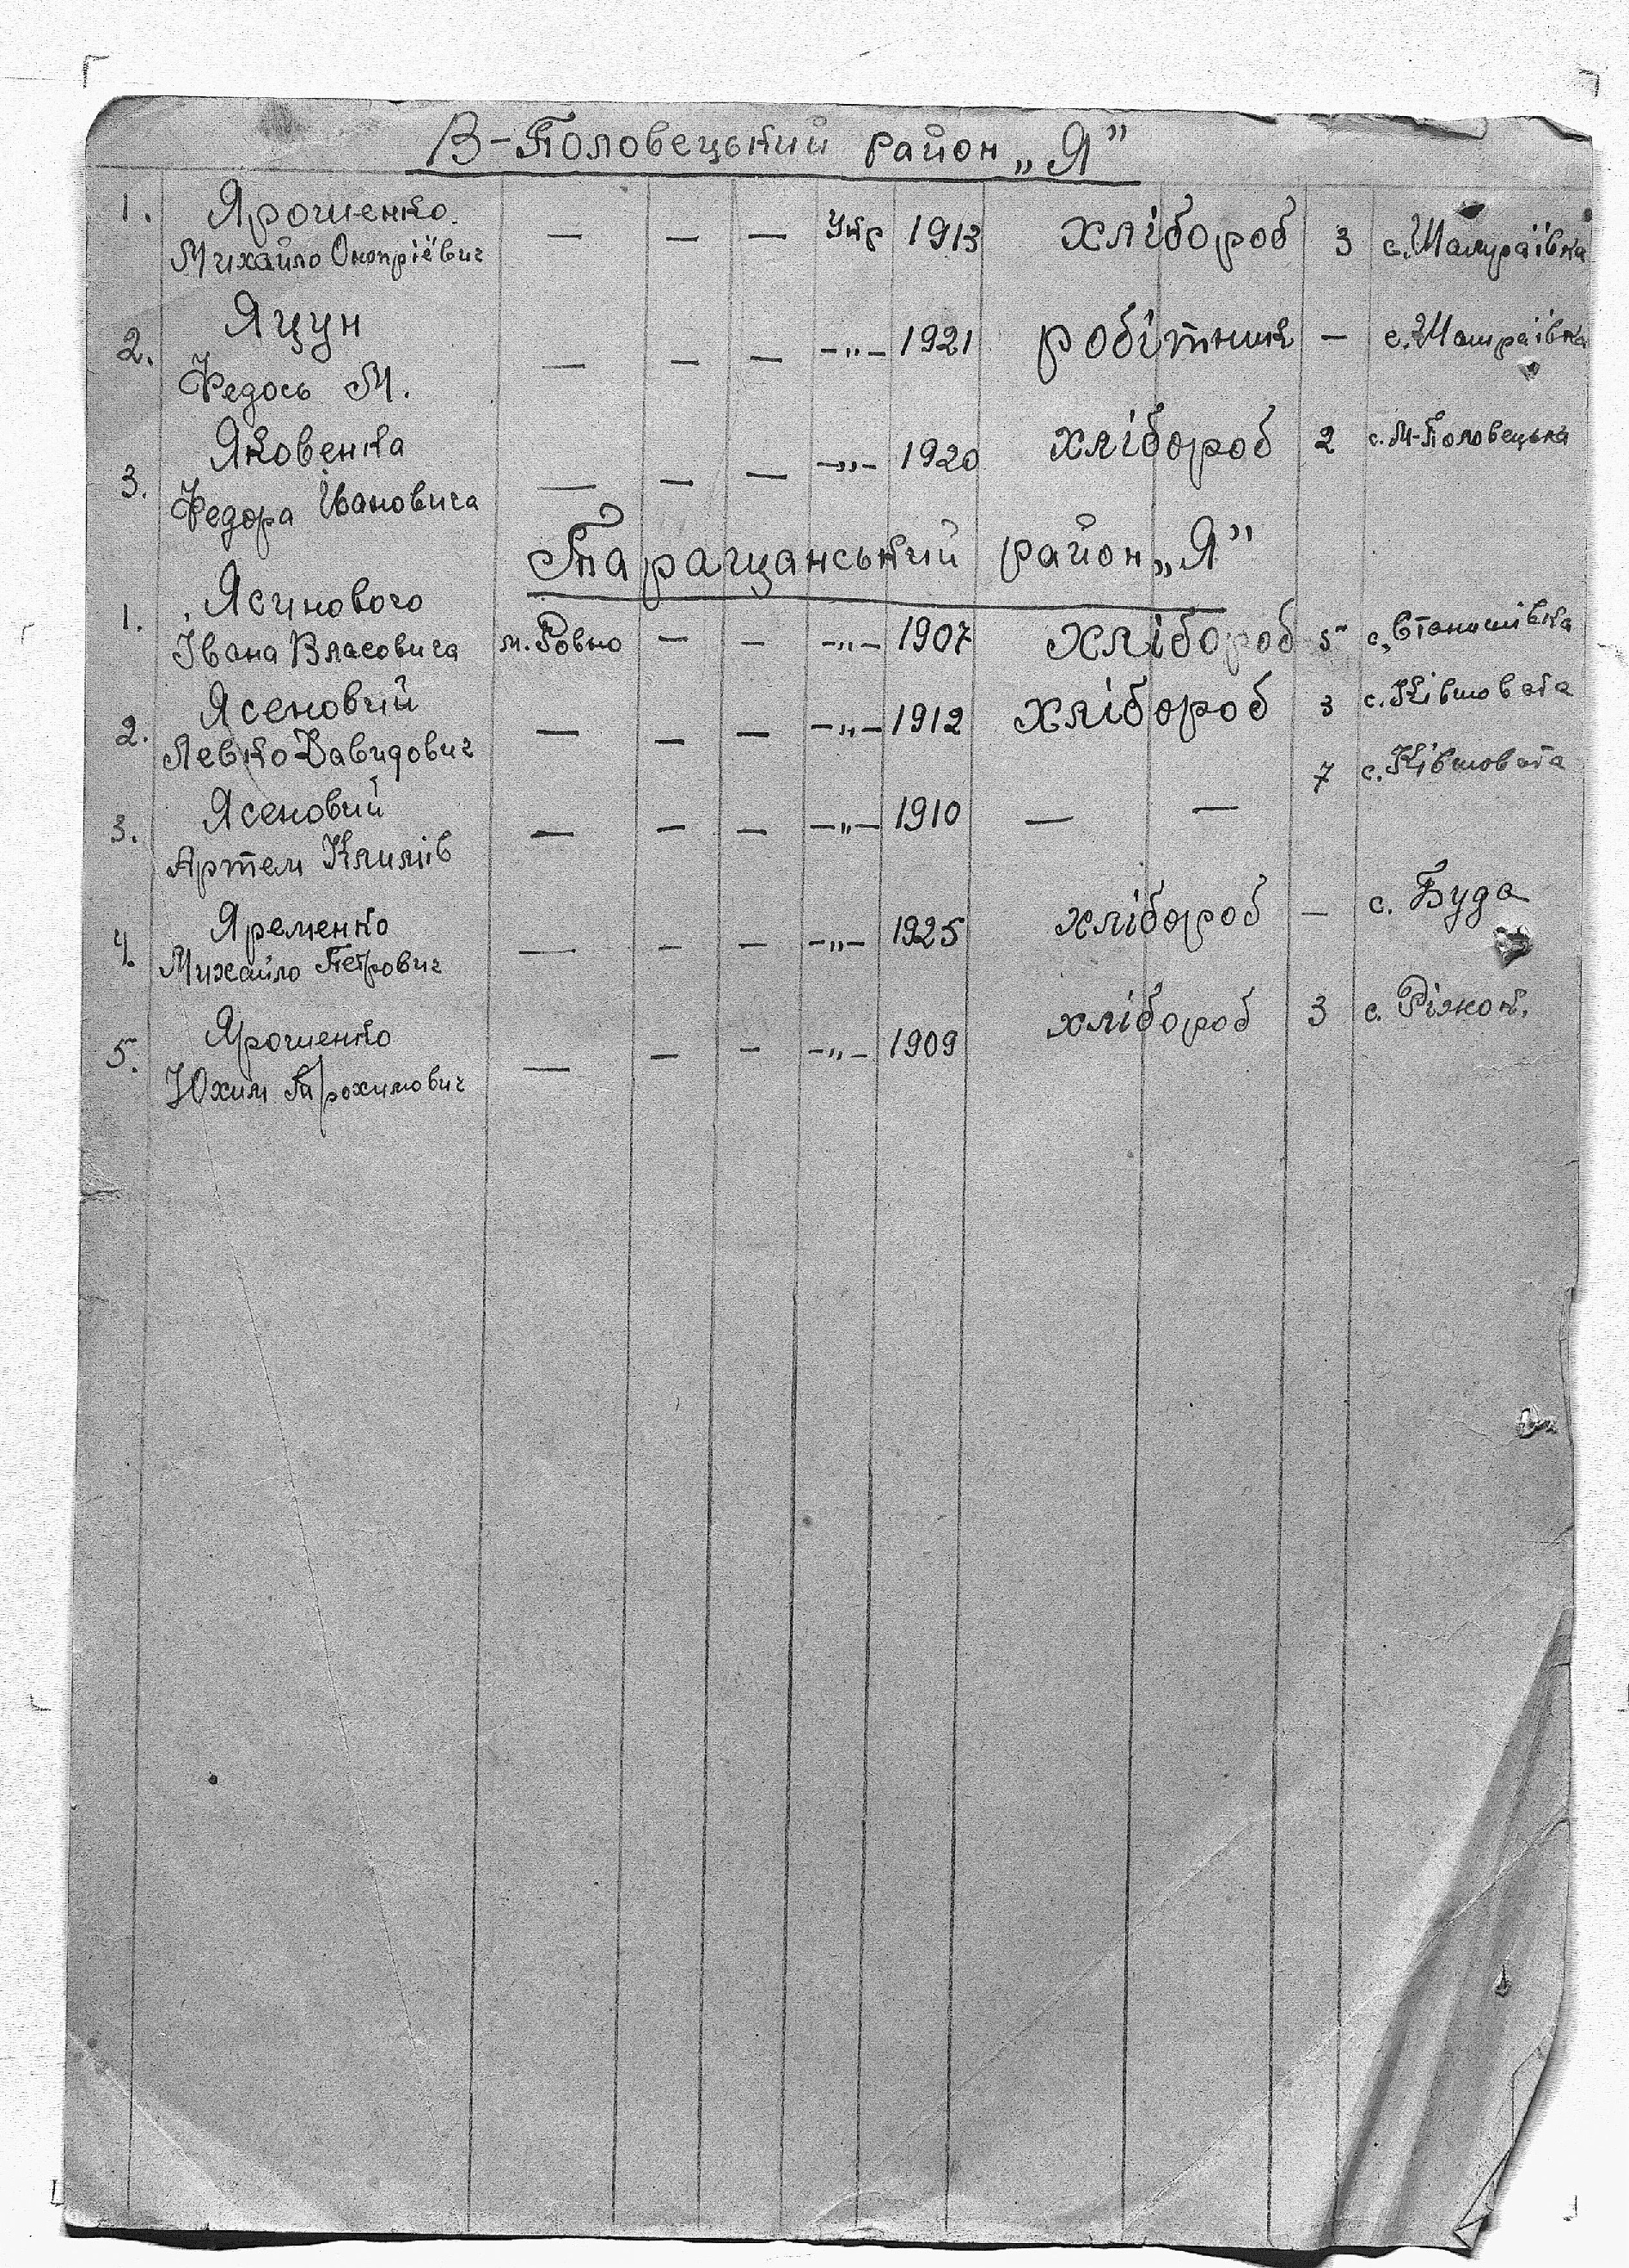 В-Половецький район „Я”
1. Ярошенко Михайло Оноприёвич — — — Укр 1913 хлібороб 3 с. Шамраївка
2. Яцун Федось М. — — — -„- 1921 робітник — с. Шамраївка
3. Яковенка Федора Івановича — — — -„- 1920 хлібороб 2 с. М-Половецька
Таращанський район „Я”
1. Ясинового Івана Власовича м. Ровно — — -„- 1907 хлібороб 5 с. Станишівка
2. Ясеновий Левко Давидович — — — -„- 1912 хлібороб 3 с. Ківшовата
3. Ясеновий Артем Климів — — — -„- 1910 — — 7 с. Ківшовата
4. Яременко Михайло Петрович — — — -„- 1925 хлібороб — с. Буда
5. Ярошенко Юхим Трохимович — — — -„- 1909 хлібороб 3 с. Ріжок.